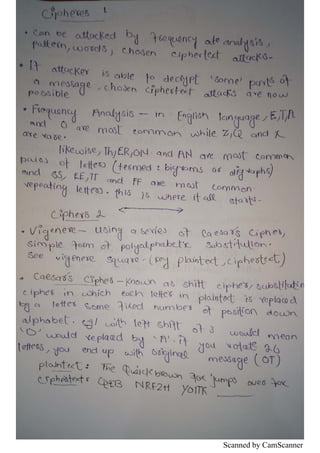 Cipheres 1
• Can be attacked by frequency ate analysis,
pattern, words, chosen ciphertext attacks.
• If attacker is able to decrypt 'some' parts of
a message - chosen ciphertext attacks are now
possible
• Frequency Analysis - in English language, E,T,A
and O are most common while Z,Q and X
are rare.
likewise, Th, ER, ON and AN are most common
pairs of letters (termed: bigrams or digraphs)
and SS, EE, TT and FF are most common
repeating letters. this is where it all starts.
Ciphers 2
• Vigenere - Using a series of Caesar's Cipher,
simple form of polyalphabetic substitution.
See vigenere square - (key plaintext, ciphertext)
• Caesar's Cipher - known as shift cipher, substitution
cipher in which each letter in plaintext is replaced
by a letter some fixed number of position down
alphabet. eg/ with left shift of 3 would mean
'D' would replaced by 'A'. if you rotate 26
letters, you end up with original message (OT)
plaintext: The Quick brown fox jumps over fox
ciphertext: QEB NRFZH YOLTK
Scanned by CamScanner